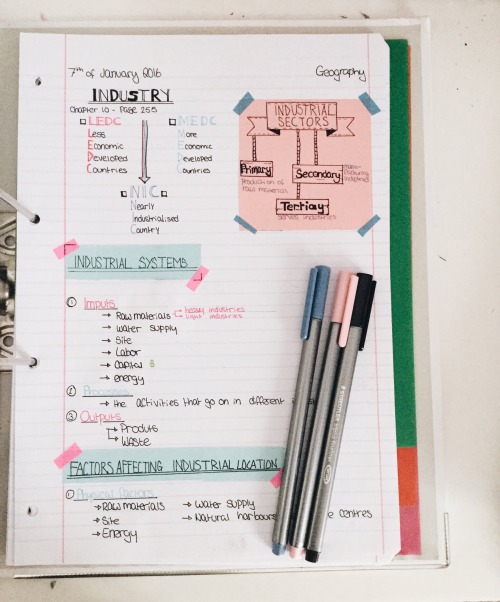 7th of January 2016
Geography
INDUSTRY
Chapter 10 - Page 255
LEDC
Less
Economic
Developed
Countries
MEDC
More
Economic
Developed
Countries
NIC
Nearly
Industrialised
Country
INDUSTRIAL
SECTORS
Primary
Production of
raw material
Secondary
Tertiary
serves industries
INDUSTRIAL SYSTEMS
① Imputs
→ Raw materials
heavy industries
light industries
→ water supply
→ Site
→ Labor
→ Capital $
→ energy
② Processes
→ the activities that go on in different
③ Outputs
→ Produts
→ Waste
FACTORS AFFECTING INDUSTRIAL LOCATION
① Physical Factors
→ Raw materials
→ Site
→ Energy
→ Water supply
→ Natural harbours
centres
STAEDTLER